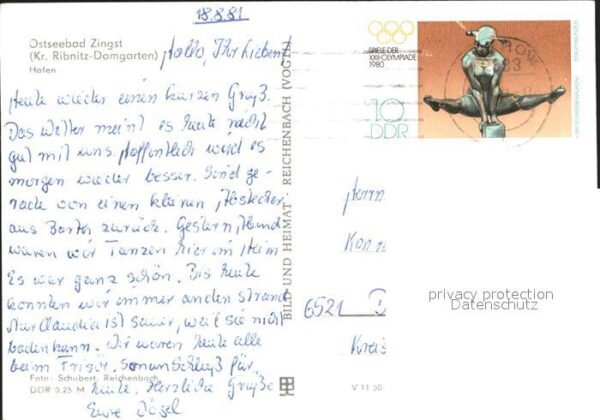 18.8.81
Ostseebad Zingst
(Kr. Ribnitz-Damgarten)
Hafen
Hallo, Ihr Lieben!
Heute wieder einen kurzen Gruß.
Das Wetter meint es heute nicht
gut mit uns. Hoffentlich wird es
morgen wieder besser. Sind ge-
rade von einen kleinen
aus Barth zurück. Gestern Abend
waren wir Tanzen hier im Heim
Es war ganz schön. Bis heute
konnten wir immer an den Strand
Nur Claudia ist sauer, weil sie nicht
baden kann. Wir waren heute alle
beim Frisör. So nun Schluß für
heute. Herzliche Grüße
Eure
Foto: Schubert, Reichenbach
DDR 0,25 M Hallo
BILD UND HEIMAT · REICHENBACH (VOGTL)
V 11 50
SPIELE DER
XXII. OLYMPIADE
1980
10
DDR
Herrn
6521 D
Kreis
privacy protection
Datenschutz